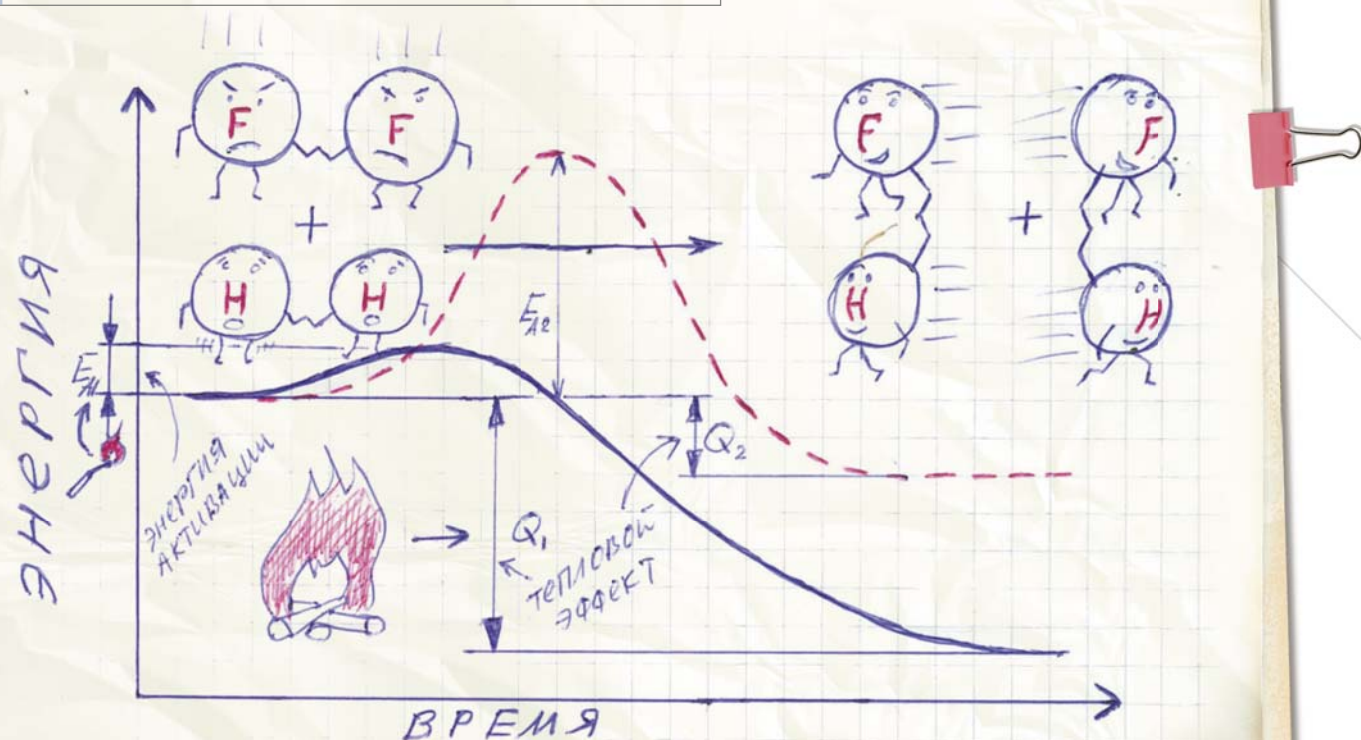 ЭНЕРГИЯ
F
F
+
H
H
F
F
+
H
H
E_A1
E_A2
ЭНЕРГИЯ
АКТИВАЦИИ
Q₁
Q₂
ТЕПЛОВОЙ
ЭФФЕКТ
ВРЕМЯ